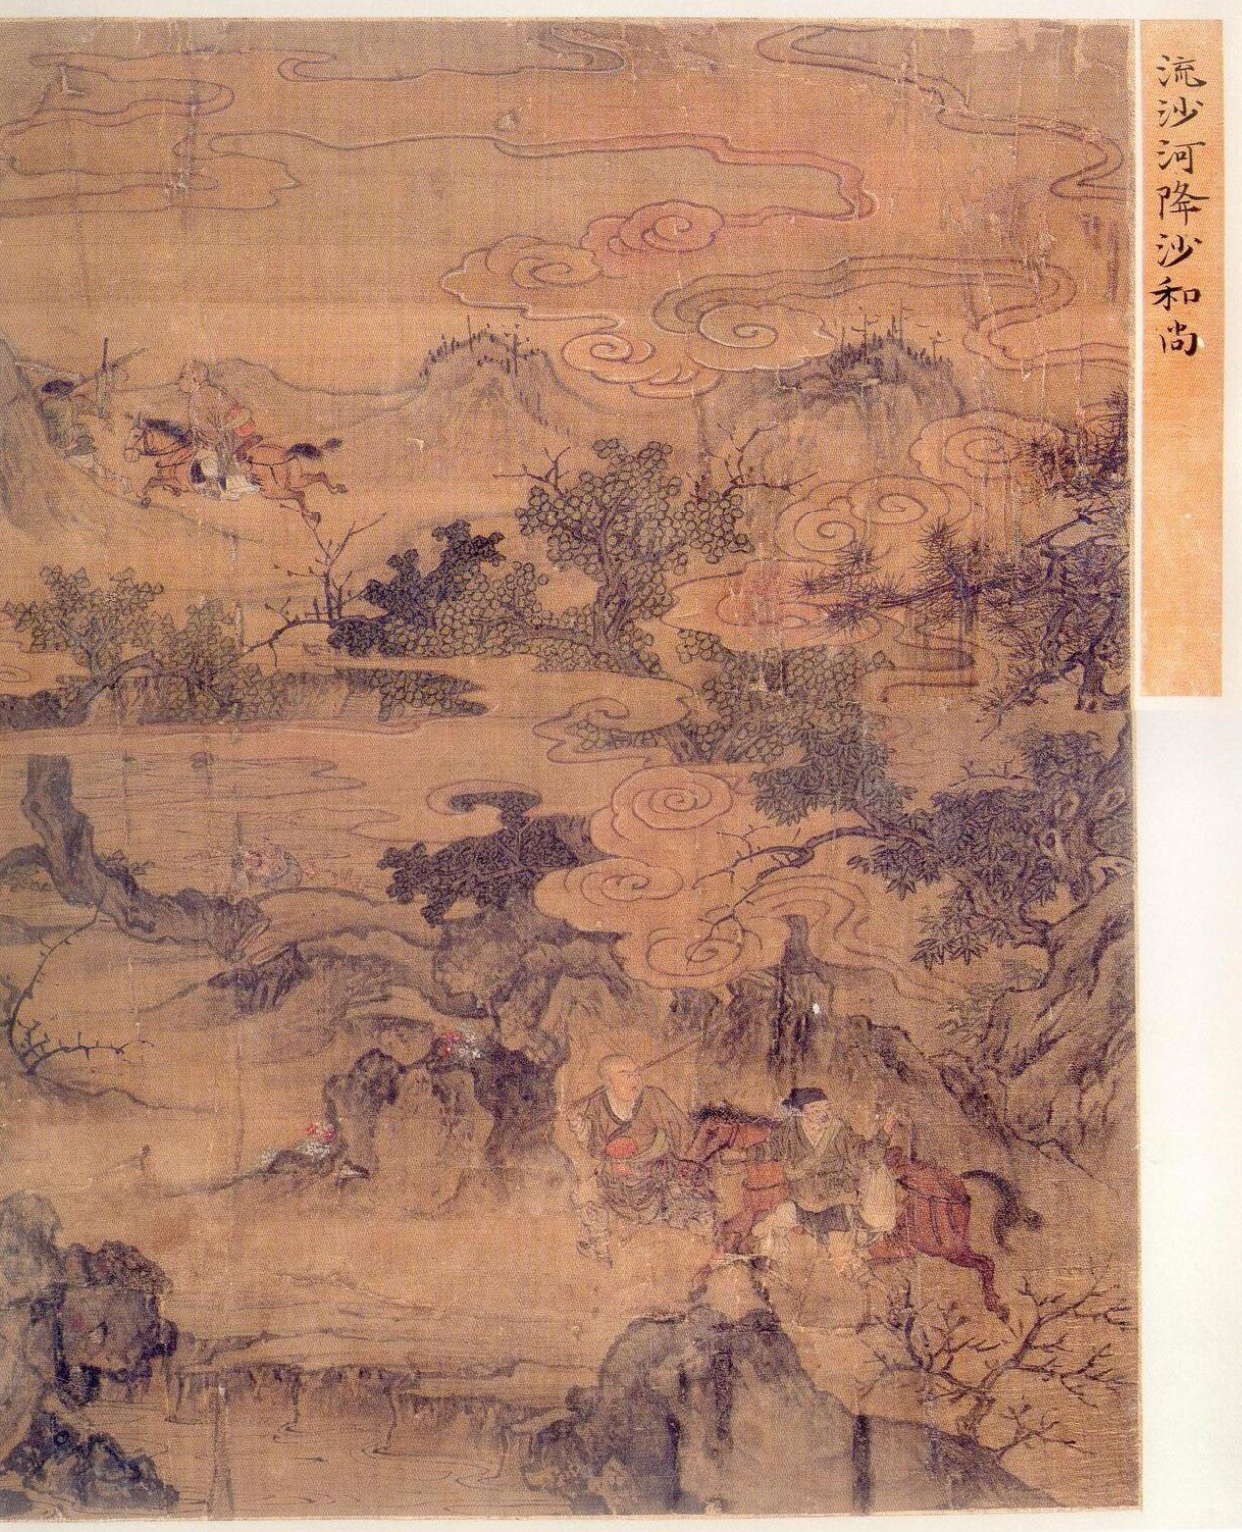 流沙河降沙和尚